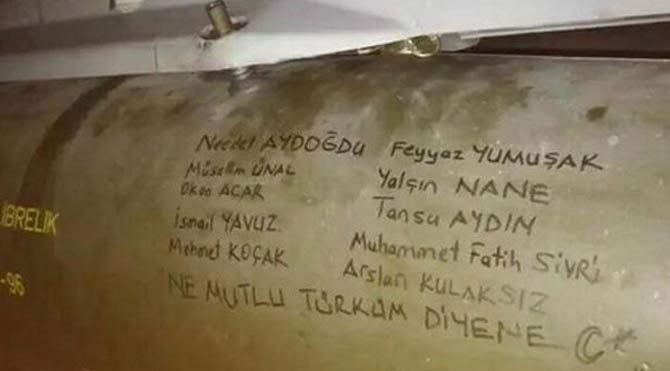 Necdet AYDOĞDU Feyyaz YUMUŞAK
Müsellim ÜNAL Yalçın NANE
Okan ACAR Tansu AYDIN
İsmail YAVUZ Muhammet Fatih SİVRİ
Mehmet KOÇAK Arslan KULAKSIZ
NE MUTLU TÜRKÜM DİYENE C*
İBRELİK
-96